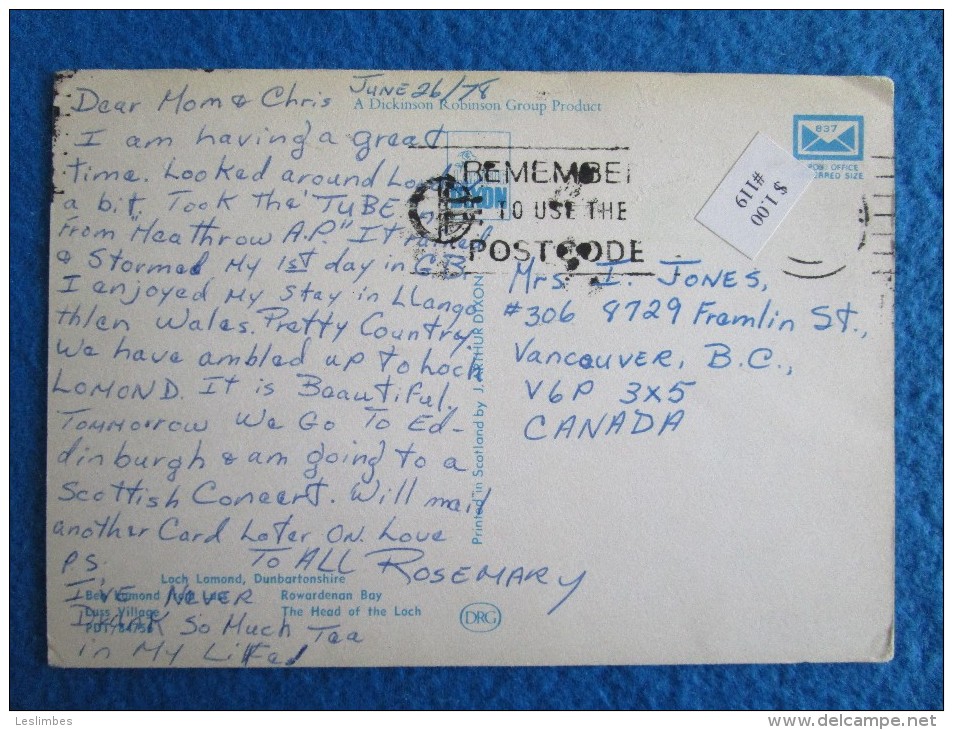 June 26/78
A Dickinson Robinson Group Product
Dear Mom & Chris
I am having a great
time. Looked around
a bit. Took the "TUBE
From "Heathrow A.P." It rained
& Stormed My 1st day in G.B.
I enjoyed My Stay in Llango
thlen Wales. Pretty Country.
We have ambled up to Loch
LOMOND. It is Beautiful.
Tommorrow We Go To Ed-
dinburgh & am going to a
Scottish Concert. Will mail
another Card Later On. Love
To ALL ROSEMARY
P.S.
I've Never
Drank So Much Tea
in My Life!
Loch Lomond, Dunbartonshire
Ben Lomond from Luss Rowardenan Bay
Luss Village The Head of the Loch
PDT/84756
DRG
Printed in Scotland by J. ARTHUR DIXON
DIXON
REMEMBER
TO USE THE
POSTCODE
$1.00
#119
837
POST OFFICE
PREFERRED SIZE
Mrs I. JONES,
#306 8729 Fremlin St.,
Vancouver, B.C.,
V6P 3X5
CANADA
Leslimbes
www.delcampe.net